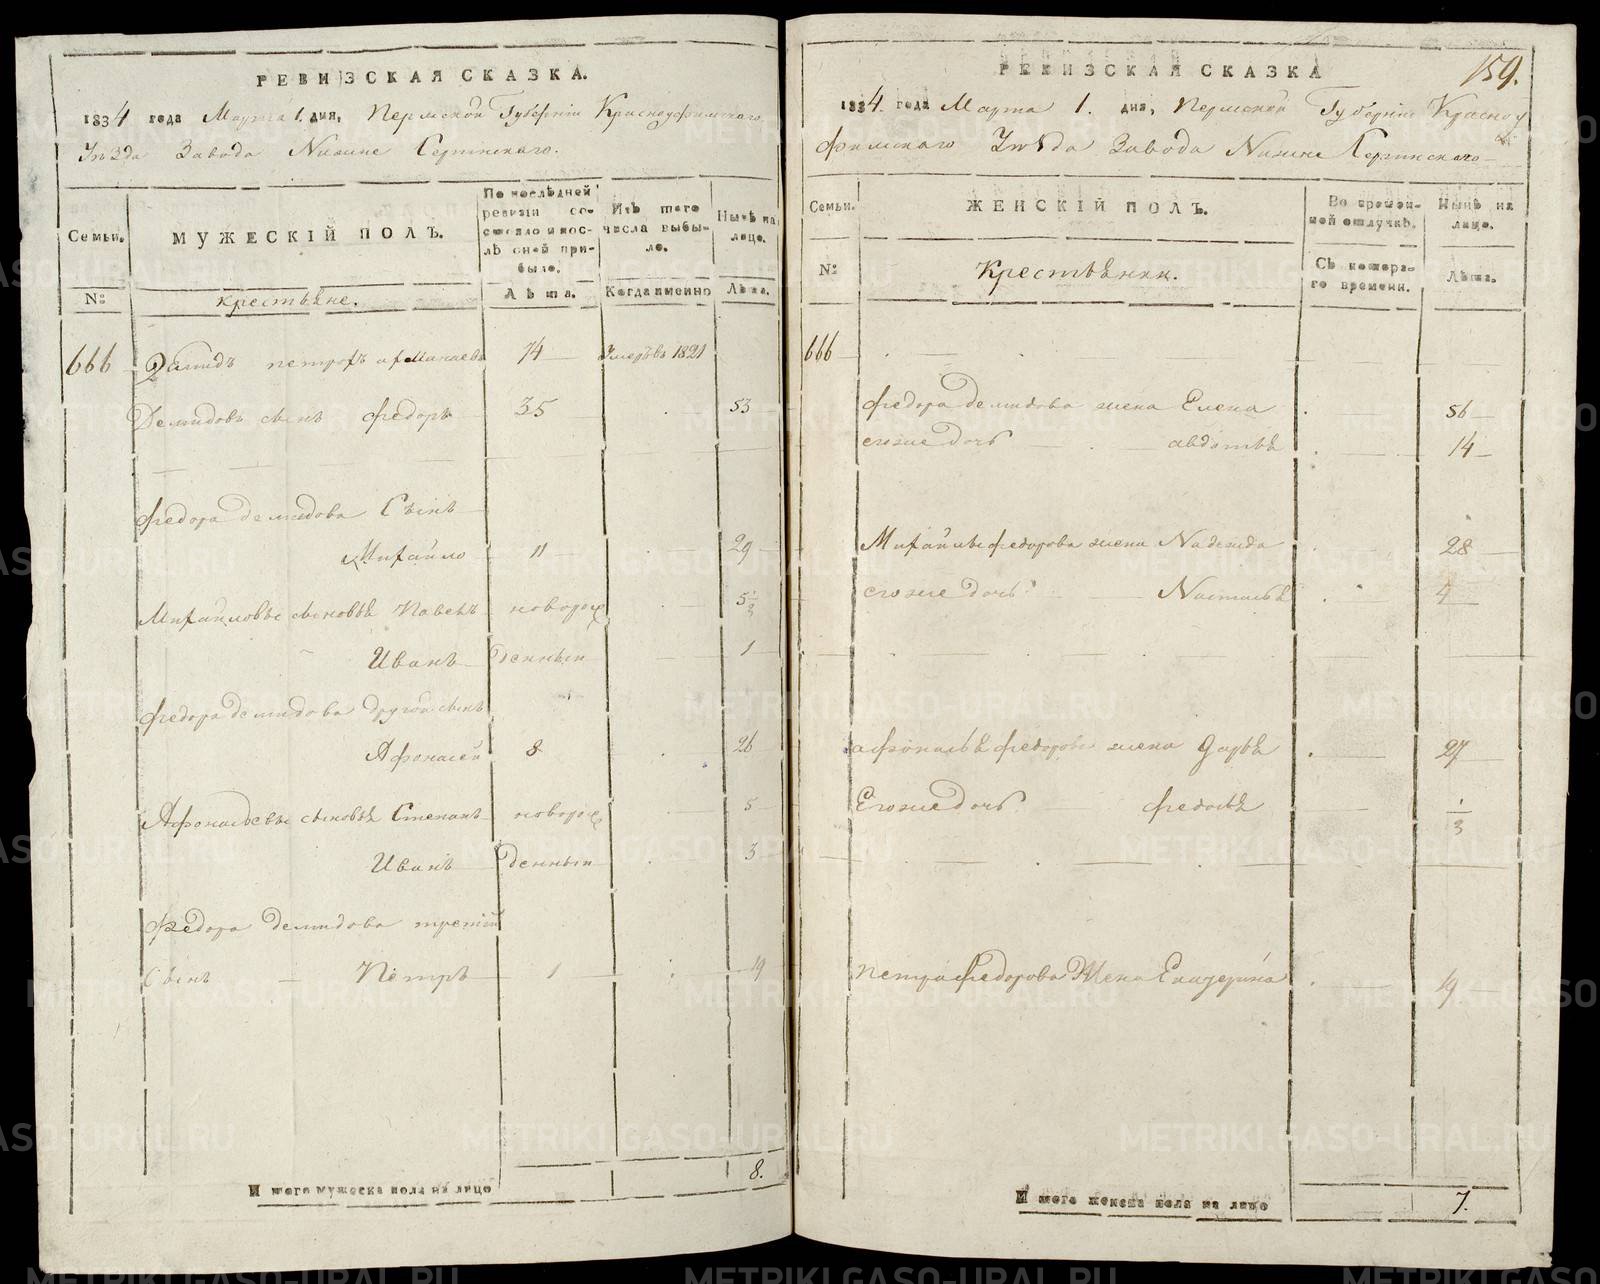 РЕВИЗСКАЯ СКАЗКА.
1834 года Марта 1. дня, Пермской Губернiи Красноуфимскаго
Уѣзда Завода Нижне Сергинскаго.
Семьи.
№:
МУЖЕСКІЙ ПОЛЪ.
Крестьяне.
По послѣдней
ревизіи со-
стояло и пос-
лѣ оной при-
было.
Лѣта.
Изъ того
числа выбы-
ло.
Когда именно
Нынѣ на
лицо.
Лѣта.
666 Демидъ Петровъ 74 Умеръ въ 1821
Демидовъ сынъ Федоръ 35 53
Федора Демидова Сынъ
Михайло 11 29
Михайловы сыновья Павелъ новорож 5 1/2
Иванъ денныи 1
Федора Демидова другой сынъ
Афонасей 8 26
Афонасьевы сыновья Степанъ новорож 5
Иванъ денныи 3
Федора Демидова третій
Сынъ Петръ 1 19
И того мужеска пола на лицо 8.
159.
РЕВИЗСКАЯ СКАЗКА
1834 года Марта 1. дня, Пермской Губернiи Красноу
фимскаго Уѣзда Завода Нижне Сергинскаго
Семьи.
№:
ЖЕНСКІЙ ПОЛЪ.
Крестьянки.
Во времен-
ной отлучкѣ.
Съ котора-
го времени.
Нынѣ на
лицо.
Лѣта.
666
Федора Демидова жена Елена 56
егоже дочь авдотья 14
Михайлы Федорова жена Надежда 28
егоже дочь Настасья 4
афонасья федорова жена Дарья 27
Егоже дочь федосья 1/3
Петра Федорова Жена Екатерина 19
И того женска пола на лицо 7.
METRIKI.GASO-URAL.RU